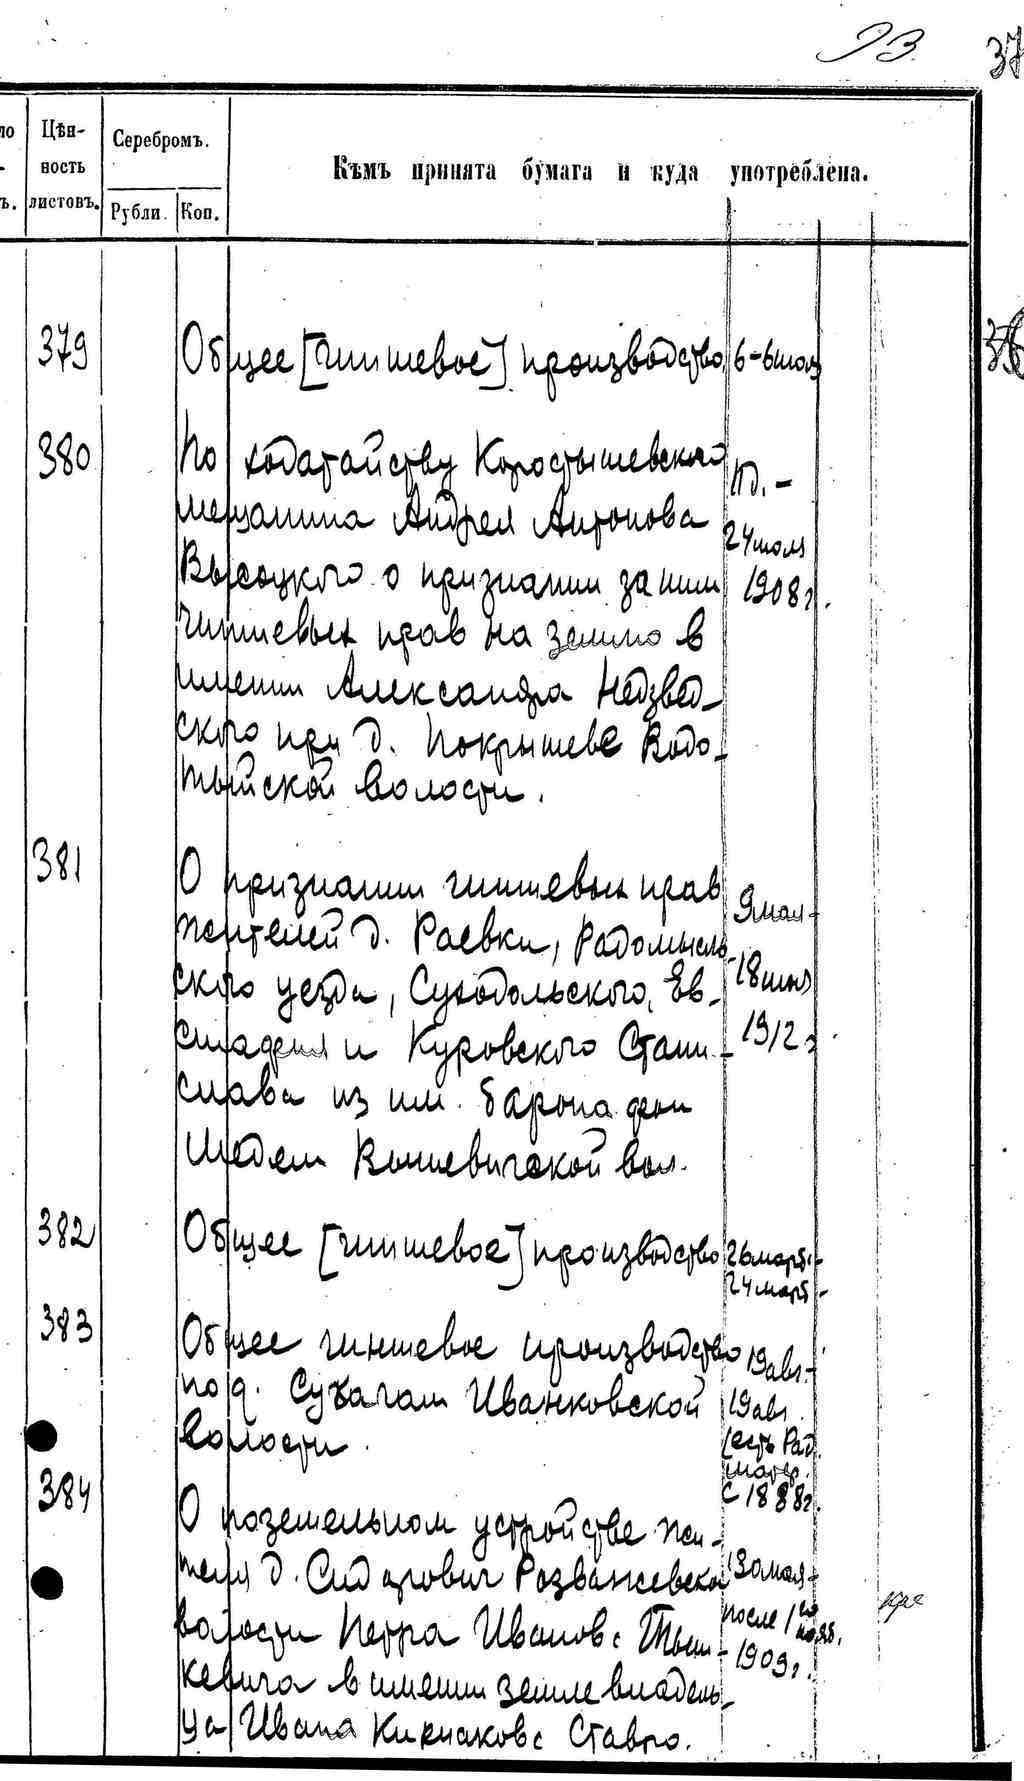 93.
37
Цѣн-
ность
листовъ.
Серебромъ.
Рубли. Коп.
Кѣмъ принята бумага и куда употреблена.
379 Общее [чиншевое] производство 6-6 июля
380 По ходатайству Коростышевского
мещанина Андрея Антонова
Высоцкого о признании за ним
чиншевых прав на землю в
имении Александра Недзвед-
ского при д. Покрышеве Водо-
тыйской волости.
24 июля
1908 г.
381 О признании чиншевых прав
жителей д. Раевки, Радомысль-
ского уезда, Суходольского, Ев-
стафия и Куровского Стани-
слава из им. барона фон
Шедем Вышевичской вол.
9 мая-
18 июня
1912 г.
382 Общее [чиншевое] производство 26 марта-
24 марта
383 Общее чиншевое производство
по д. Иванковской
волости.
19 авг.-
19 авг.
(есть Рад.
матер.
с 1888 г.
384 О поземельном устройстве жи-
теля д. Сидорович Розважевской
волости Петра Иванова Тыш-
кевича в имении землевладель-
ца Ивана Кириакова Ставро.
30 мая-
после 1го
нояб.
1909 г.